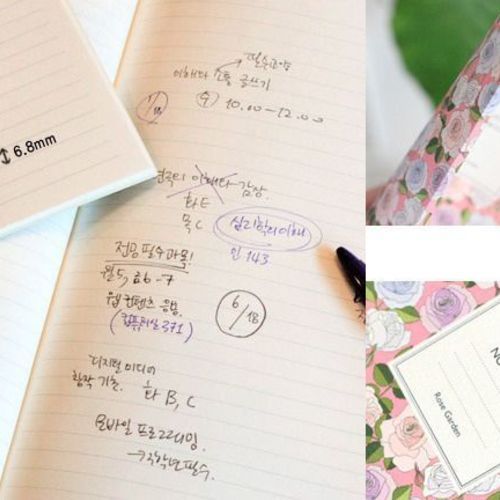 6.8mm
필수교양
이해와 소통 글쓰기
7/18
9 10.00-12.00
한국의 이해와 감상.
화E
목C
심리학의이해
인143
전공필수과목!
월5, 화6-7
웹컨텐츠 응용.
(컴퓨터실371)
6/18
디지털 미디어
창작 기초. 화B, C
모바일 프로그래밍.
→ 2학년필수.
NO
Rose Garden